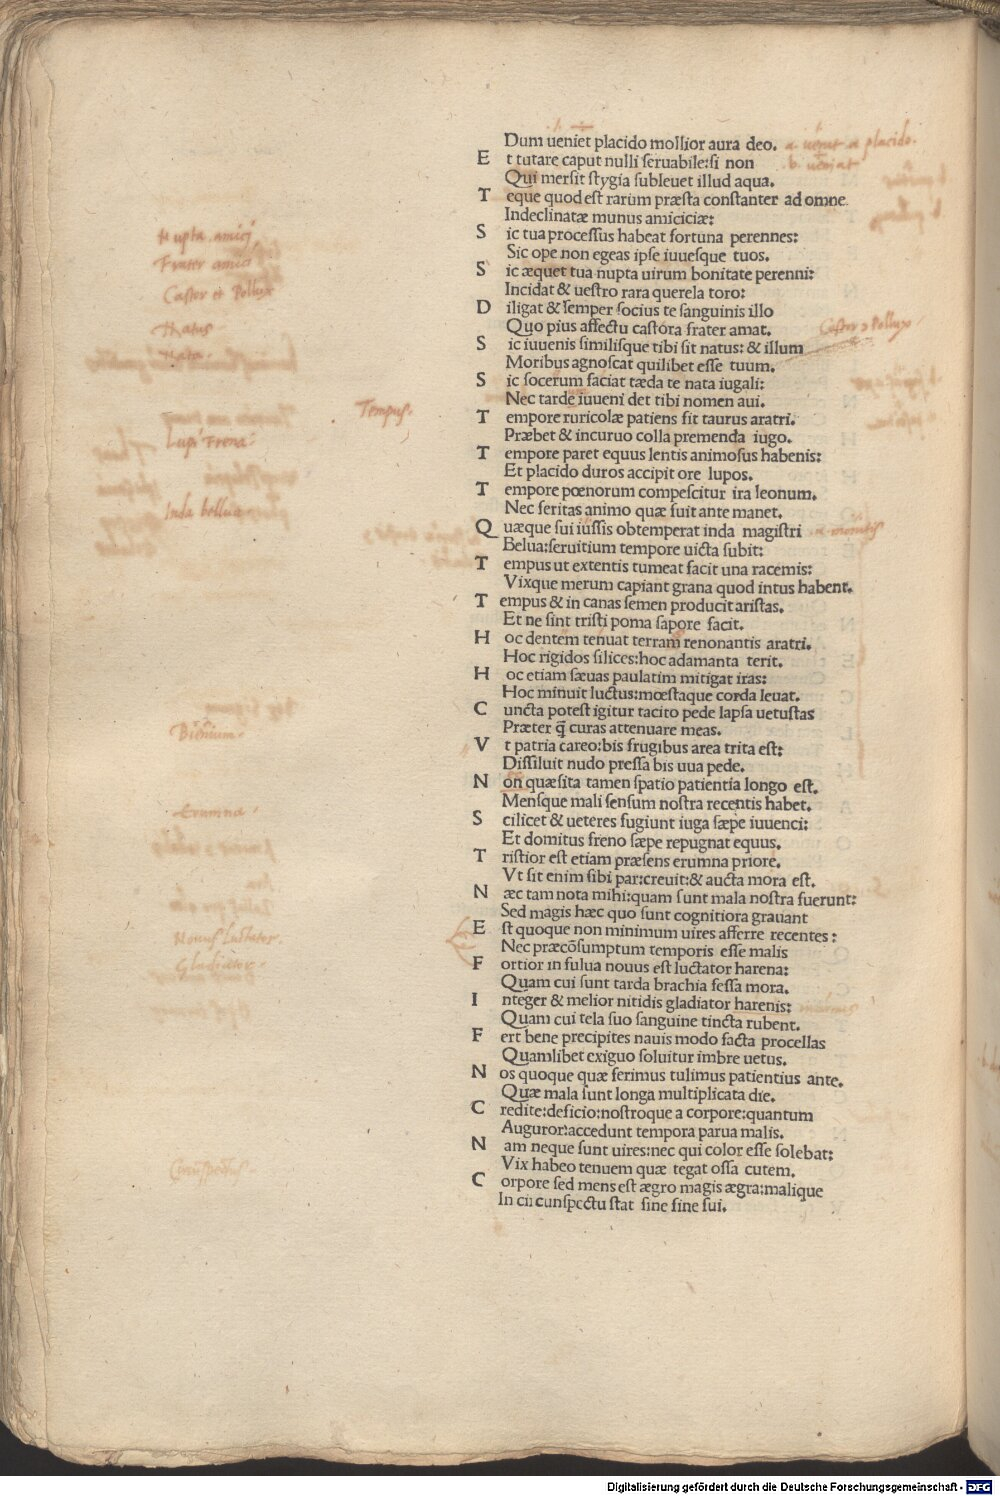 Dum ueniet placido mollior aura deo.
E t tutare caput nulli seruabile:si non
Qui mersit stygia subleuet illud aqua.
T eque quod est rarum præsta constanter ad omne
Indeclinatæ munus amiciciæ:
S ic tua processus habeat fortuna perennes:
Sic ope non egeas ipse iuuesque tuos.
S ic æquet tua nupta uirum bonitate perenni:
Incidat & uestro rara querela toro:
D iligat & semper socius te sanguinis illo
Quo pius affectu castora frater amat.
S ic iuuenis similisque tibi sit natus: & illum
Moribus agnoscat quilibet esse tuum.
S ic socerum faciat tæda te nata iugali:
Nec tarde iuueni det tibi nomen aui.
T empore ruricolæ patiens sit taurus aratri.
Præbet & incuruo colla premenda iugo.
T empore paret equus lentis animosus habenis:
Et placido duros accipit ore lupos.
T empore pœnorum compescitur ira leonum.
Nec feritas animo quæ fuit ante manet.
Q uæque sui iussis obtemperat inda magistri
Belua:seruitium tempore uicta subit:
T empus ut extentis tumeat facit una racemis:
Vixque merum capiant grana quod intus habent.
T empus & in canas semen producit aristas.
Et ne sint tristi poma sapore facit.
H oc dentem tenuat terram renonantis aratri.
Hoc rigidos silices:hoc adamanta terit.
H oc etiam sæuas paulatim mitigat iras:
Hoc minuit luctus:mœstaque corda leuat.
C uncta potest igitur tacito pede lapsa uetustas
Præter q̃ curas attenuare meas.
V t patria careo:bis frugibus area trita est:
Dissiluit nudo pressa bis uua pede.
N on quæsita tamen spatio patientia longo est.
Mensque mali sensum nostra recentis habet.
S cilicet & ueteres fugiunt iuga sæpe iuuenci:
Et domitus freno sæpe repugnat equus.
T ristior est etiam præsens erumna priore.
Vt sit enim sibi par:creuit:& aucta mora est.
N æc tam nota mihi:quam sunt mala nostra fuerunt:
Sed magis hæc quo sunt cognitiora grauant
E st quoque non minimum uires afferre recentes:
Nec præcõsumptum temporis esse malis
F ortior in fulua nouus est luctator harena:
Quam cui sunt tarda brachia fessa mora.
I nteger & melior nitidis gladiator harenis:
Quam cui tela suo sanguine tincta rubent.
F ert bene precipites nauis modo facta procellas
Quamlibet exiguo soluitur imbre uetus.
N os quoque quæ ferimus tulimus patientius ante.
Quæ mala sunt longa multiplicata die.
C redite:deficio:nostroque a corpore:quantum
Auguror:accedunt tempora parua malis.
N am neque sunt uires:nec qui color esse solebat:
Vix habeo tenuem quæ tegat ossa cutem.
C orpore sed mens est ægro magis ægra:malique
In circunspectu stat sine fine sui.
Nupta amici
Frater amici
Castor et Pollux
Natus
Nata
Tempus.
Lupi Frena
Inda bellua
Biennium
Erumna
Nouus luctator
Gladiator
a. placido.
Castor Pollux
Digitalisierung gefördert durch die Deutsche Forschungsgemeinschaft - DFG